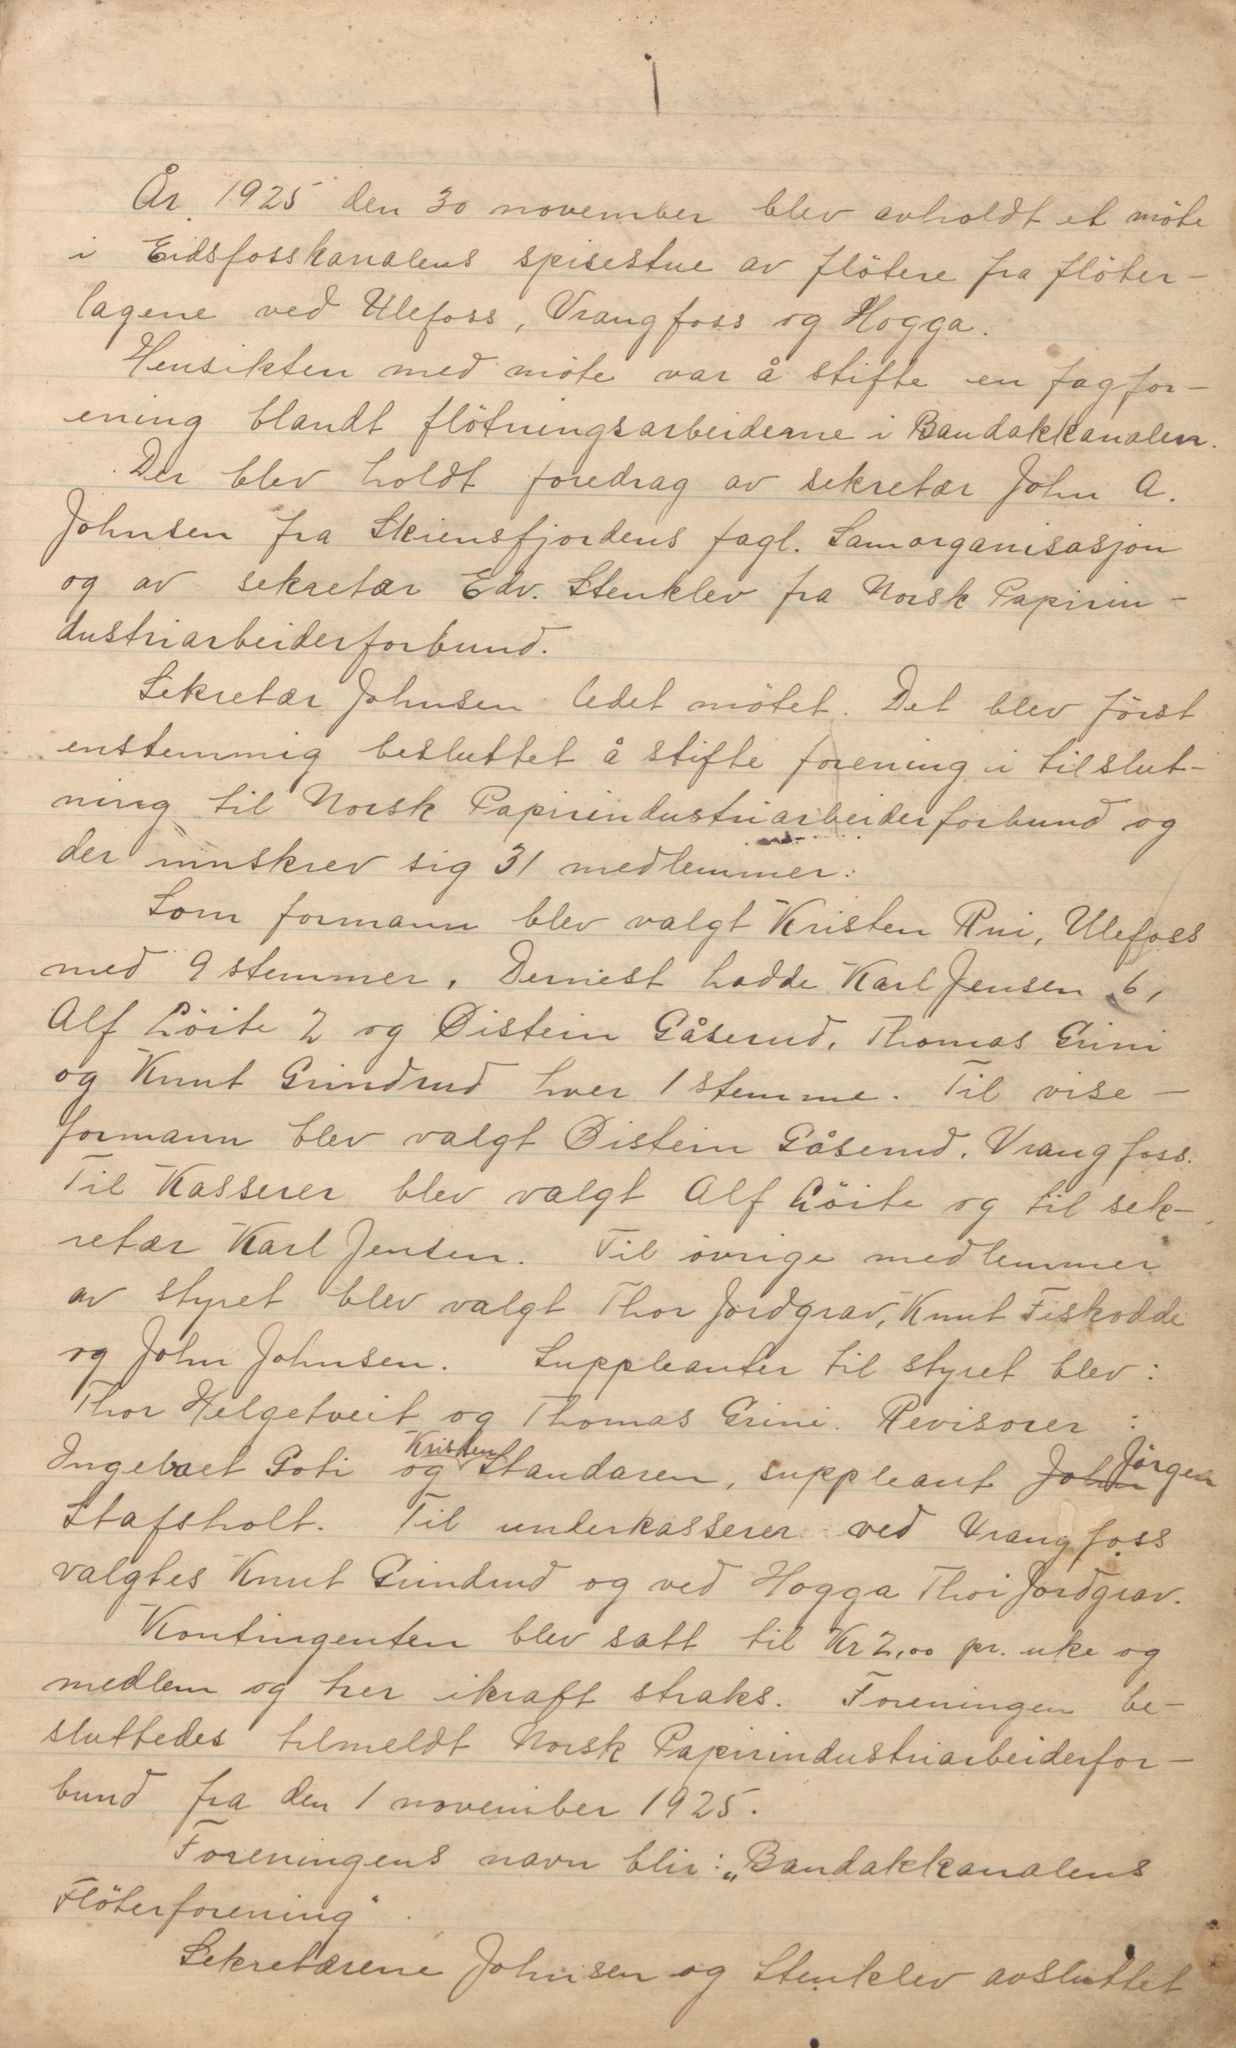 1
År 1925 den 30 november blev avholdt et möte
i Eidsfosskanalens spisestue av flötere fra flöter-
lagene ved Ulefoss, Vrangfoss og Hogga.
Hensikten med möte var å stifte en fagfor-
ening blandt flötningsarbeiderne i Bandakkanalen.
Der blev holdt foredrag av sekretær John A.
Johnsen fra Skiensfjordens fagl. Samorganisasjon
og av sekretær Edv. Stenklev fra Norsk Papirin-
dustriarbeiderforbund.
Sekretær Johnsen ledet mötet. Det blev först
enstemmig besluttet å stifte forening i tilslut-
ning til Norsk Papirindustriarbeiderforbund og
der innskrev sig 31 medlemmer:
Som formann blev valgt Kristen Rui, Ulefoss
med 9 stemmer. Dernest hadde Karl Jensen 6,
Alf Löite 2 og Øistein Gåserud, Thomas Grini
og Knut Grindrud hver 1 stemme. Til vise-
formann blev valgt Øistein Gåserud, Vrangfoss.
Til Kasserer blev valgt Alf Löite og til sek-
retær Karl Jensen. Til övrige medlemmer
av styret blev valgt Thor Jordgrav, Knut Fiskodde
og John Johnsen. Suppleanter til styret blev:
Thor Helgetveit og Thomas Grini. Revisorer:
Ingebret Goti og Kristen Standaren, suppleant John Jörgen
Stafsholt. Til underkasserer ved Vrangfoss
valgtes Knut Grindrud og ved Hogga Thor Jordgrav.
Kontingenten blev satt til Kr 2,00 pr. uke og
medlem og trer ikraft straks. Foreningen be-
sluttedes tilmeldt Norsk Papirindustriarbeiderfor-
bund fra den 1 november 1925.
Foreningens navn blir: „Bandakkanalens
Flöterforening".
Sekretærene Johnsen og Stenklev avsluttet